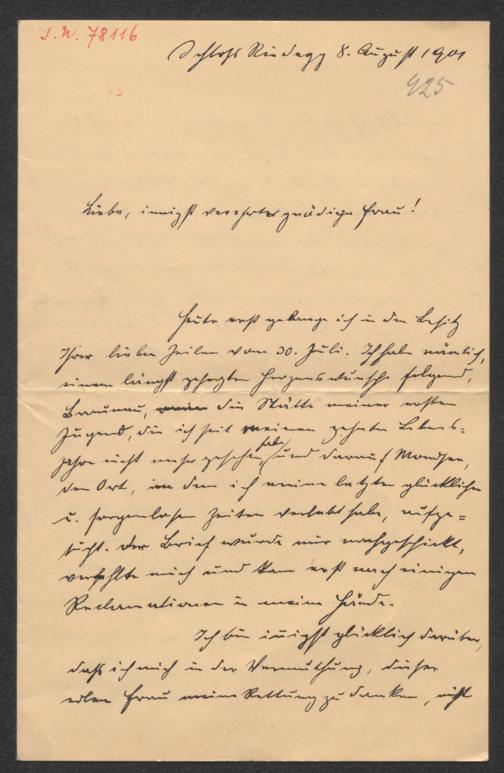 J. N. 78116
Schloß Riedegg 8. August 1901
425
Liebe, innigst verehrte gnädige Frau!
Heute erst gelange ich in den Besitz
Ihrer lieben Zeilen vom 30. Juli. Ich habe nämlich,
einem längst gehegten Herzenswunsche folgend,
Braunau, die Stätte meiner ersten
Jugend, die ich seit meinem zehnten Lebens-
jahre nicht mehr gesehen habe, und darauf Mondsee,
den Ort, in dem ich meine letzten glücklichen
u. sorgenlosen Zeiten verlebt habe, aufge-
sucht. Der Brief wurde mir nachgeschickt,
verfehlte mich und kam erst nach einigen
Reclamationen in meine Hände.
Ich bin innigst glücklich darüber,
daß ich mich in der Vermuthung, dieser
edlen Frau meine Rettung zu danken, nicht